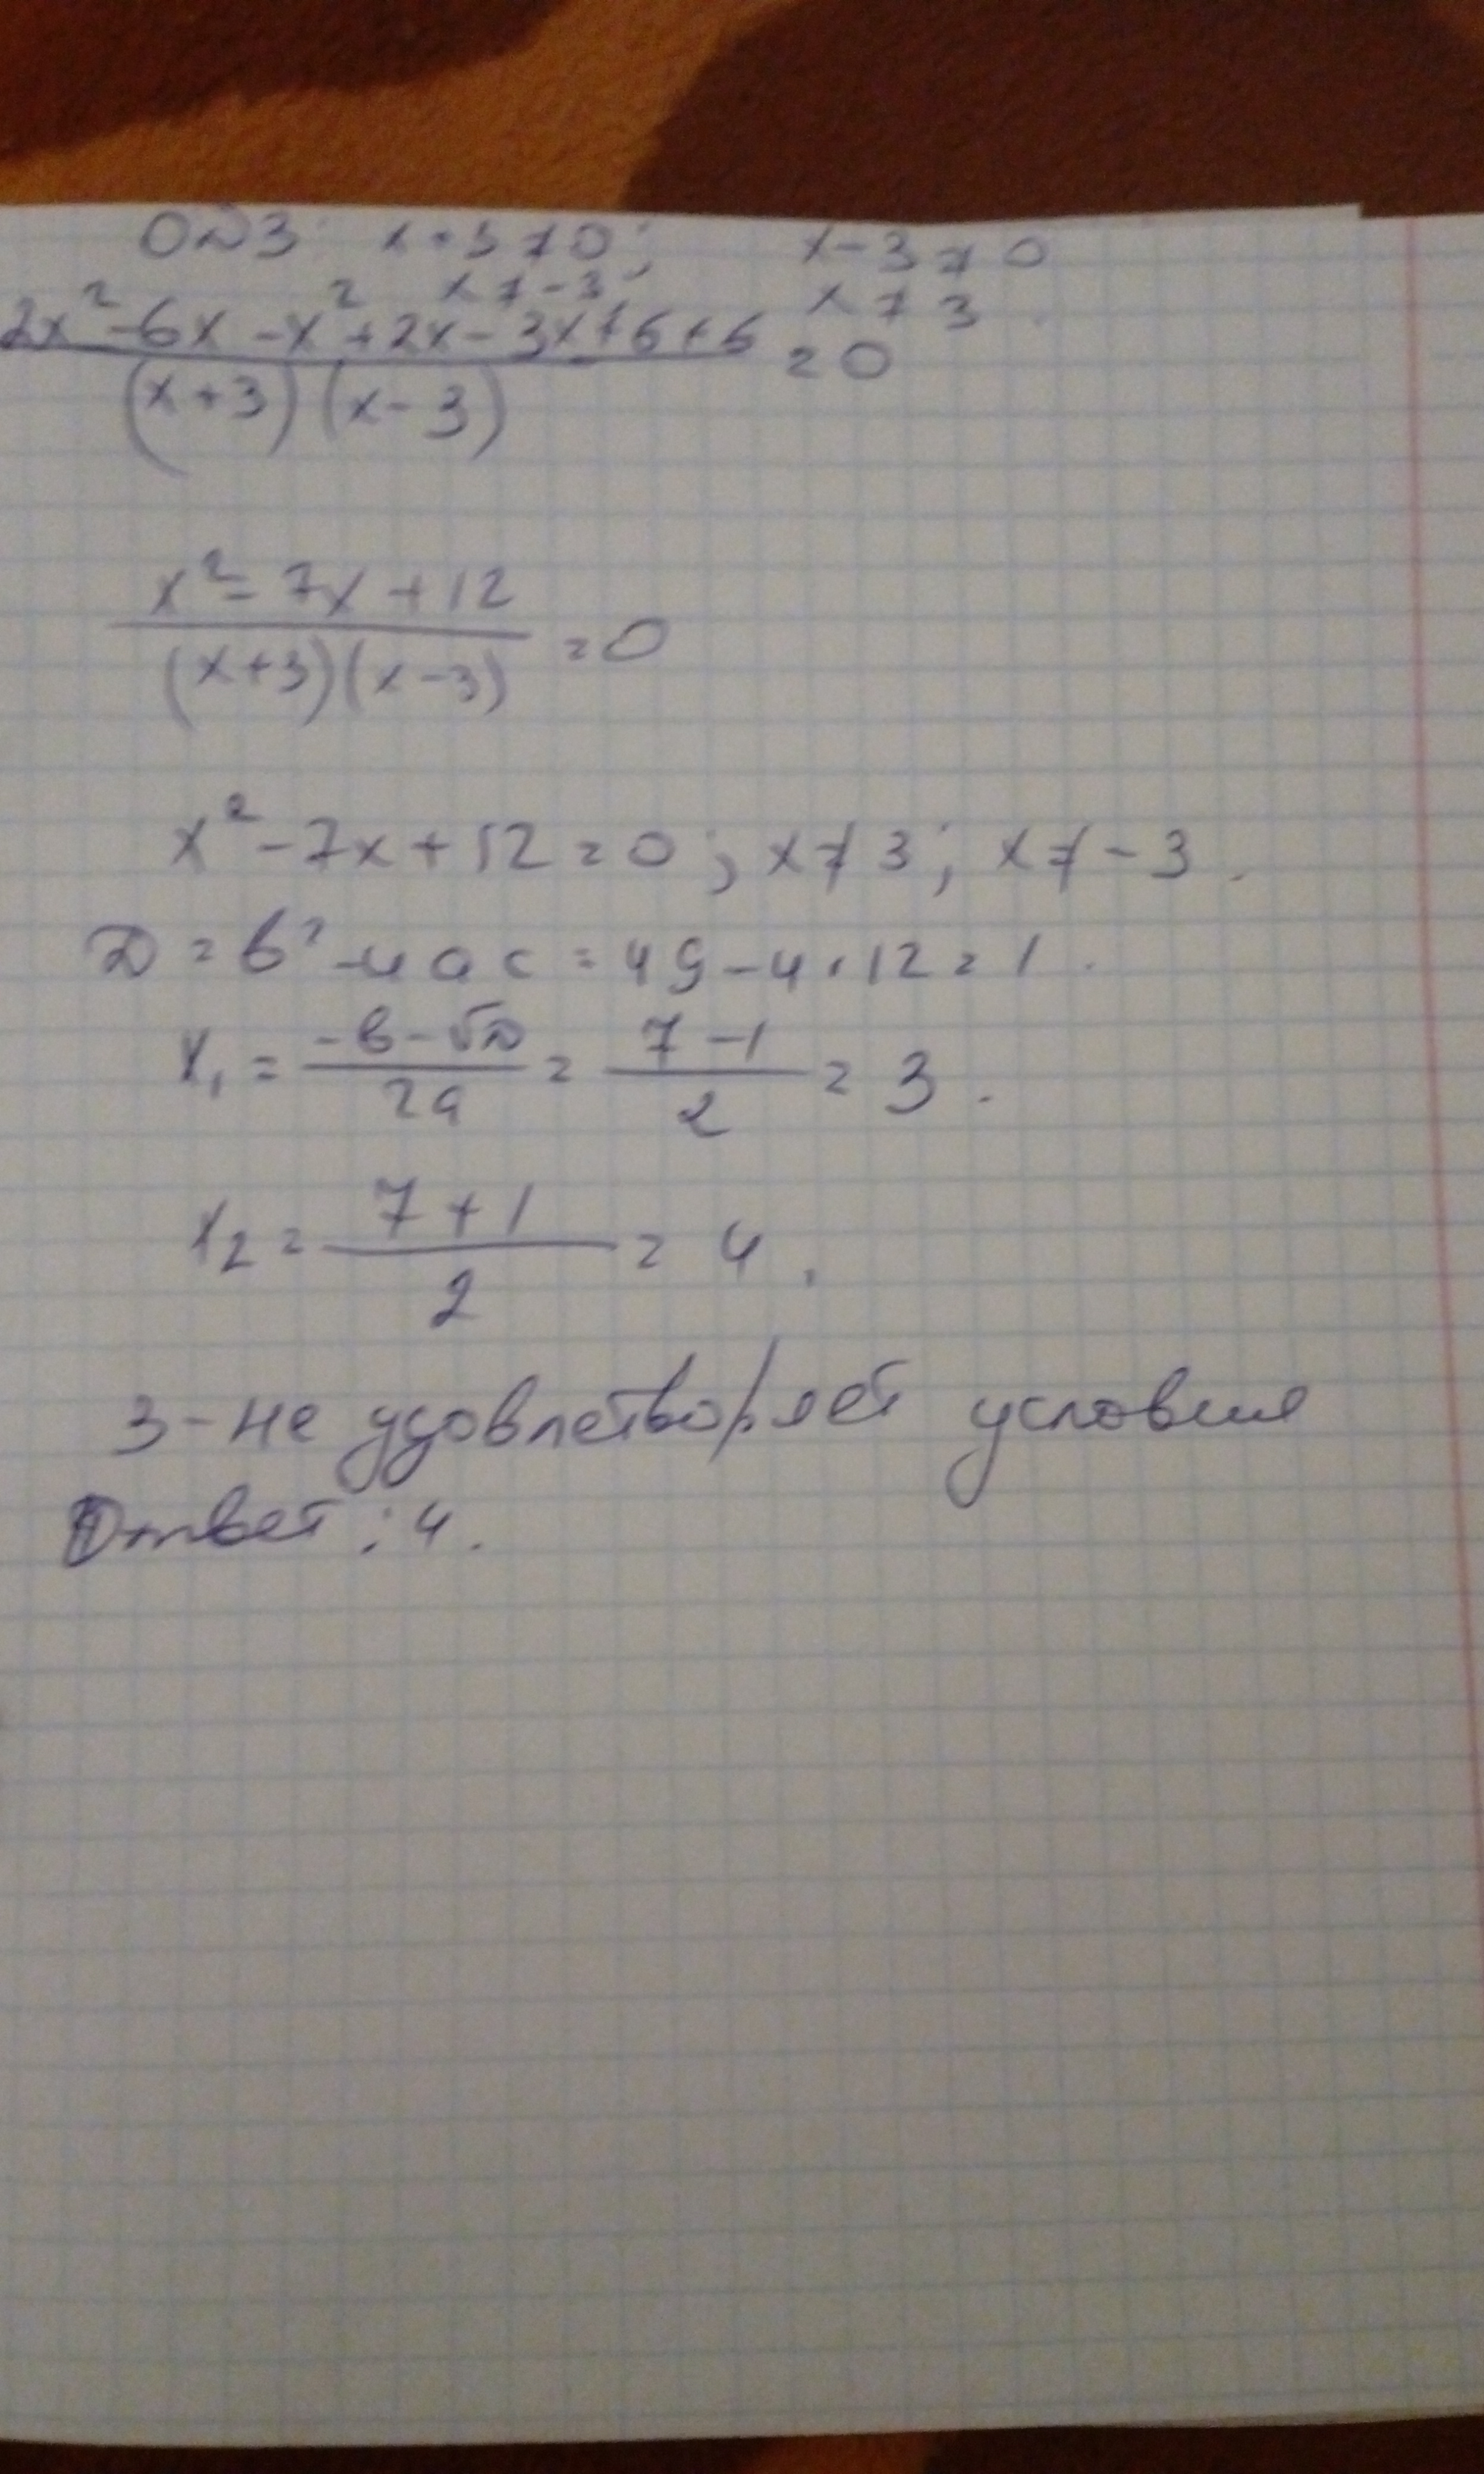 ОДЗ: x+3≠0; x-3≠0
x≠-3 x≠3.
2x²-6x-x²+2x-3x+6+6 =0
(x+3)(x-3)
x²-7x+12 =0
(x+3)(x-3)
x²-7x+12=0; x≠3; x≠-3.
D=b²-4ac=49-4·12=1.
x₁= -b-√D / 2a = 7-1 / 2 = 3.
x₂= 7+1 / 2 = 4.
3-не удовлетворяет условия
Ответ: 4.